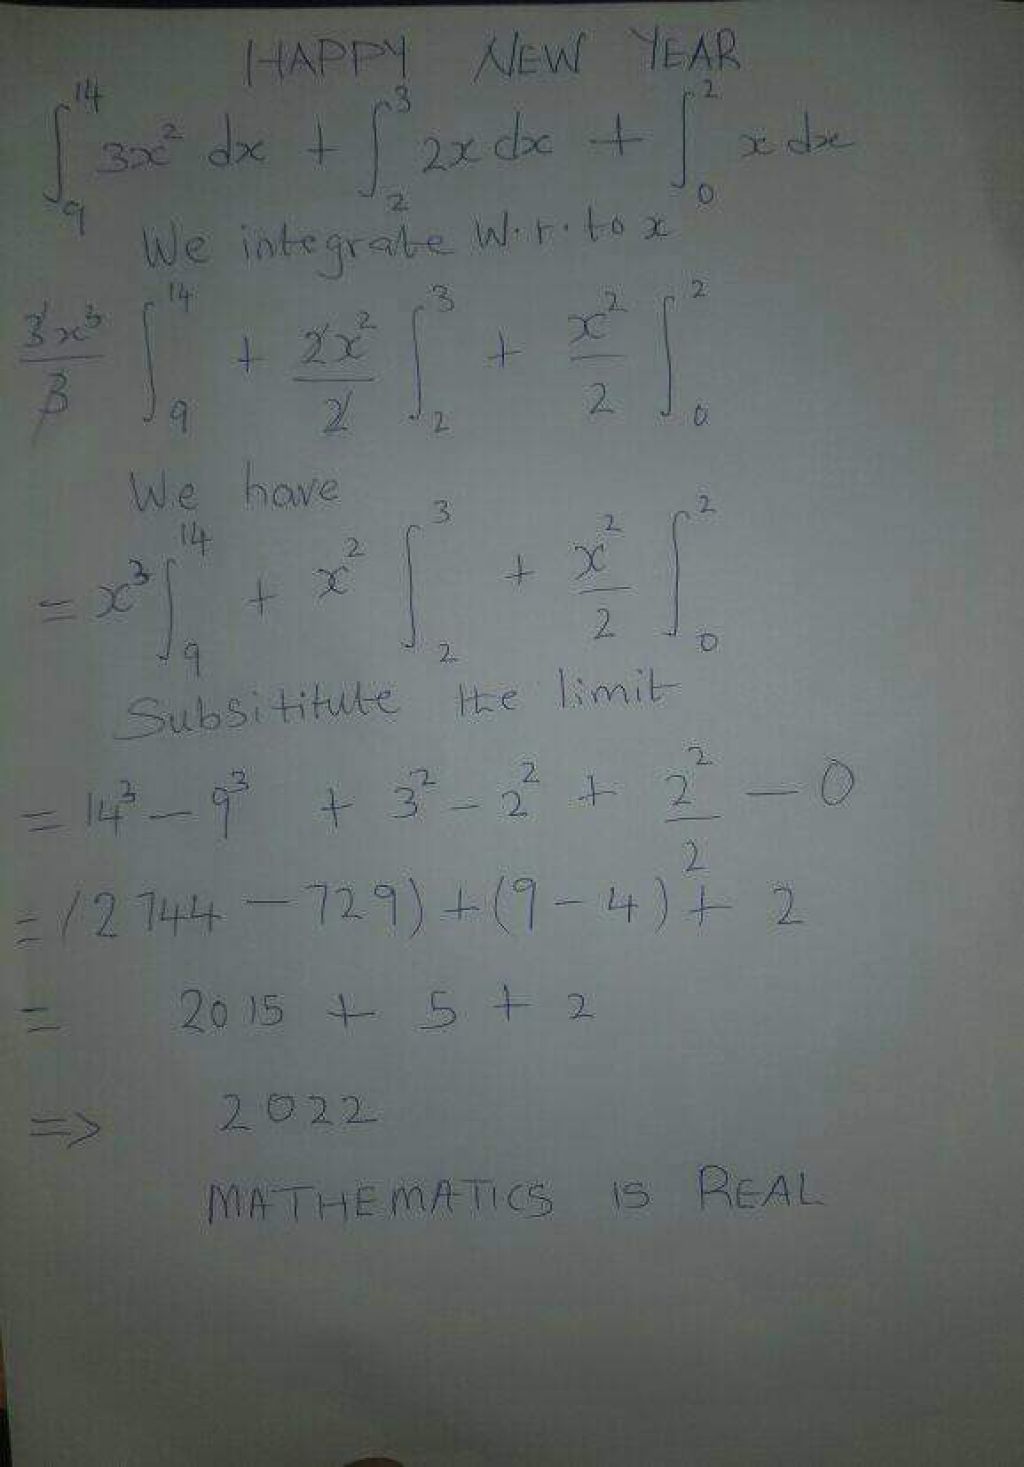 HAPPY NEW YEAR
∫₉¹⁴ 3x² dx + ∫₂³ 2x dx + ∫₀² x dx
We integrate w.r.to x
3x³/3 ∫₉¹⁴ + 2x²/2 ∫₂³ + x²/2 ∫₀²
We have
= x³ ∫₉¹⁴ + x² ∫₂³ + x²/2 ∫₀²
Subsititute the limit
= 14³ - 9³ + 3² - 2² + 2²/2 - 0
= (2744 - 729) + (9 - 4) + 2
= 2015 + 5 + 2
=> 2022
MATHEMATICS IS REAL